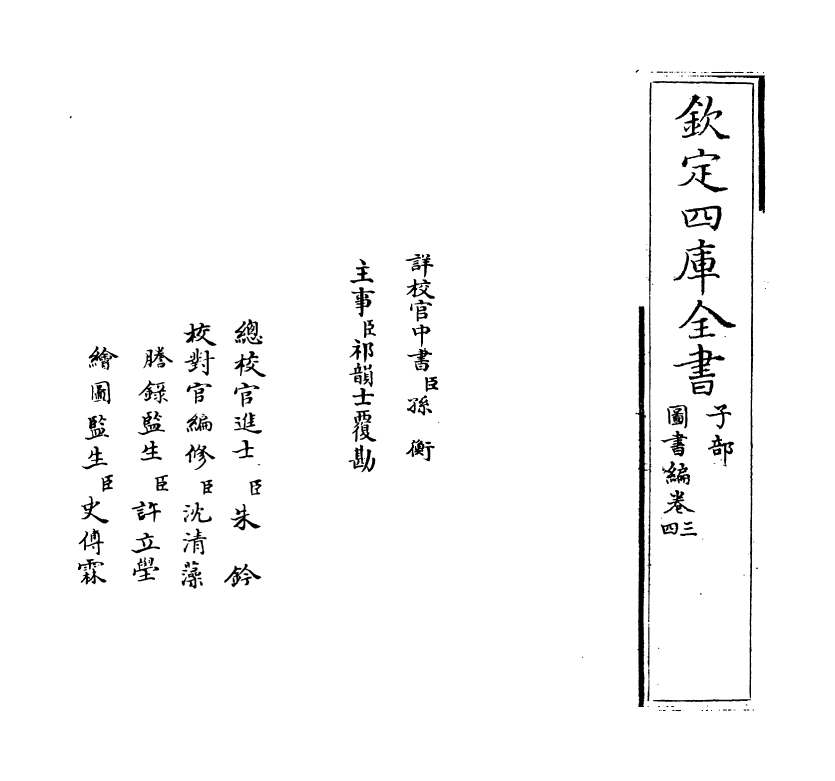 欽定四庫全書
子部
圖書編卷三
四
詳校官中書臣孫衡
主事臣祁韻士覆勘
總校官進士臣朱鈐
校對官編修臣沈清藻
謄錄監生臣許立瑩
繪圖監生臣史傅霖